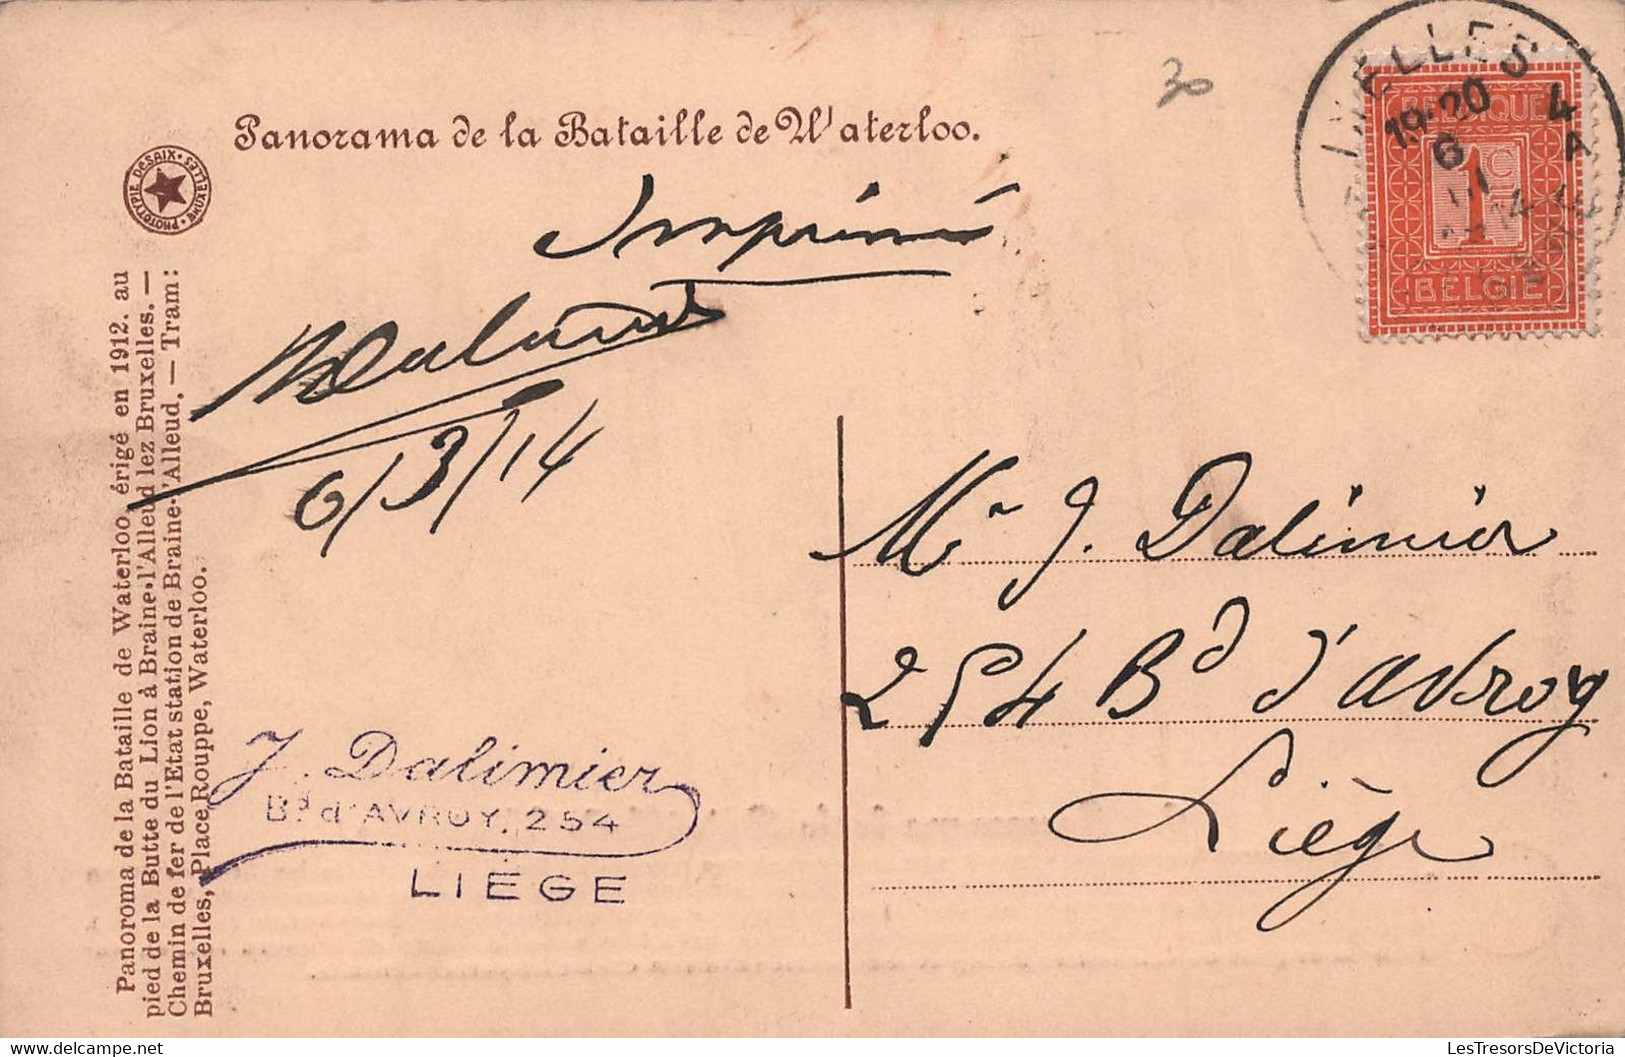 30
Panorama de la Bataille de Waterloo.
PHOTOTYPIE DESAIX • BRUXELLES •
Imprimé
6/3/14
Panoroma de la Bataille de Waterloo, érigé en 1912. au
pied de la Butte du Lion à Braine-l'Alleud lez Bruxelles. —
Chemin de fer de l'Etat station de Braine-l'Alleud. — Tram:
Bruxelles, Place Rouppe, Waterloo.
IXELLES 4
19-20
6
III
14
A
BELGIQUE
1c
BELGIE
Mr J. Dalimier
254 Bd d'Avroy
Liège
J. Dalimier
Bd d'AVROY, 254
LIEGE
LesTresorsDeVictoria